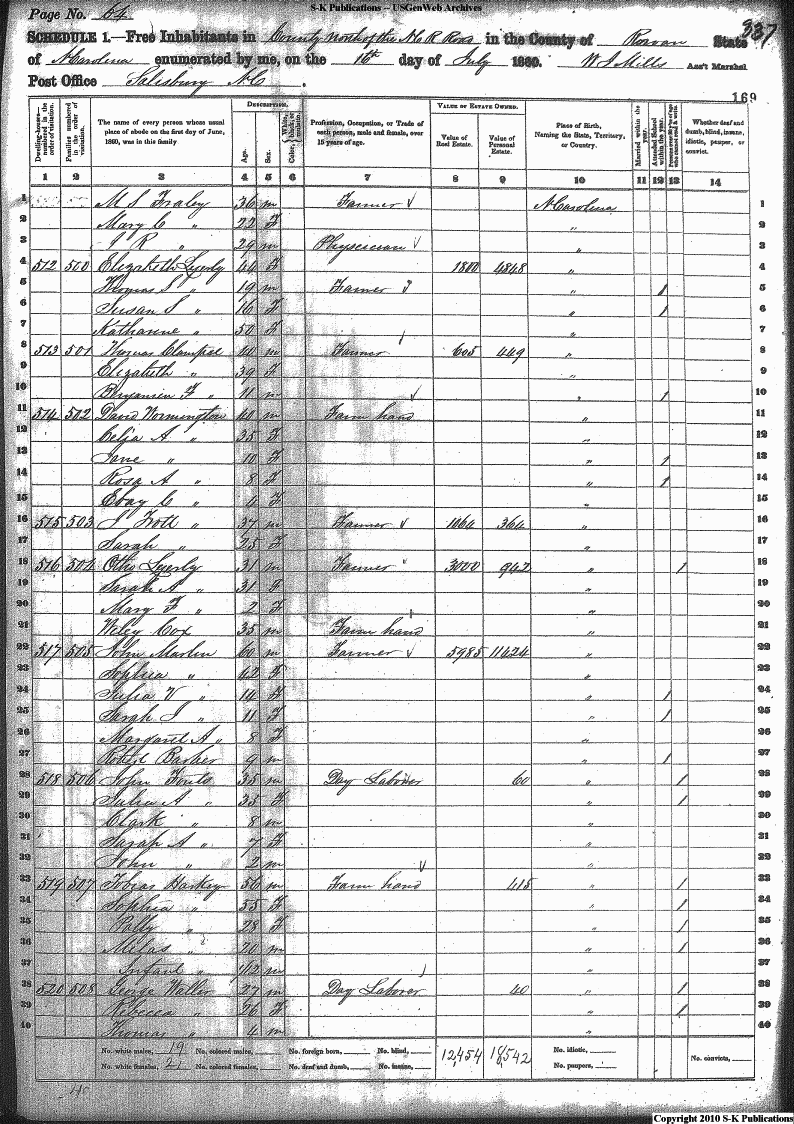 S-K Publications -- USGenWeb Archives
Page No. 64
337
SCHEDULE 1.—Free Inhabitants in County North of the N.C. R Road in the County of Rowan State
of N Carolina enumerated by me, on the 16th day of July 1860. W J Mills Ass't Marshal
Post Office Salisbury N C.
169
Dwelling-houses—numbered in the order of visitation.
Families numbered in the order of visitation.
The name of every person whose usual place of abode on the first day of June, 1860, was in this family
DESCRIPTION.
Age. Sex. Color, White, black, or mulatto.
Profession, Occupation, or Trade of each person, male and female, over 15 years of age.
VALUE OF ESTATE OWNED.
Value of Real Estate. Value of Personal Estate.
Place of Birth, Naming the State, Territory, or Country.
Married within the year.
Attended School within the year.
Persons over 20 y'rs of age who cannot read & write.
Whether deaf and dumb, blind, insane, idiotic, pauper, or convict.
1 2 3 4 5 6 7 8 9 10 11 12 13 14
1 M S Fraley 36 m Farmer N Carolina 1
2 Mary C " 22 F " 2
3 J R " 29 m Physecian " 3
4 512 500 Elizabeth Lyerly 44 F 1800 4848 " 4
5 Thomas S " 19 m Farmer " 1 5
6 Susan S " 16 F " 1 6
7 Katharine " 50 F " 7
8 513 501 Thomas Clampet 40 m Farmer 605 449 " 8
9 Elizabeth " 39 F " 9
10 Benjamin F " 11 m " 1 10
11 514 502 David Wormington 40 m Farm hand " 11
12 Celia A " 35 F " 12
13 Jane " 10 F " 1 13
14 Rosa A " 8 F " 1 14
15 C " 4 F " 15
16 515 503 J " 37 m Farmer 1064 364 " 16
17 Sarah " 25 F " 17
18 516 504 Otho Lyerly 31 m Farmer 3000 942 " 1 18
19 Sarah A " 31 F " 19
20 Mary F " 2 F " 20
21 Wiley Cox 35 m Farm hand " 21
22 517 505 John Marlin 60 m Farmer 5985 11424 " 22
23 Sophia " 42 F " 23
24 Julia V " 14 F " 1 24
25 Sarah J " 11 F " 1 25
26 Margaret A " 8 F " 26
27 Robt Barber 9 m " 1 27
28 518 506 John Fouts 35 m Day Laborer 60 " 1 28
29 Julia A " 35 F " 1 29
30 Clark " 8 m " 30
31 Sarah A " 7 F " 31
32 John " 2 m " 32
33 519 507 Tobias Hartley 56 m Farm hand 415 " 1 33
34 Sophia " 55 F " 1 34
35 Polly " 28 F " 1 35
36 Milas " 20 m " 1 36
37 Infant " 1/12 m " 37
38 520 508 George Waller 27 m Day Laborer 40 " 1 38
39 Rebecca " 26 F " 1 39
40 Thomas " 4 m " 40
No. white males, 19 No. colored males, No. foreign born, No. blind, 12,454 18,542 No. idiotic,
No. white females, 21 No. colored females, No. deaf and dumb, No. insane, No. paupers, No. convicts,
Copyright 2010 S-K Publications